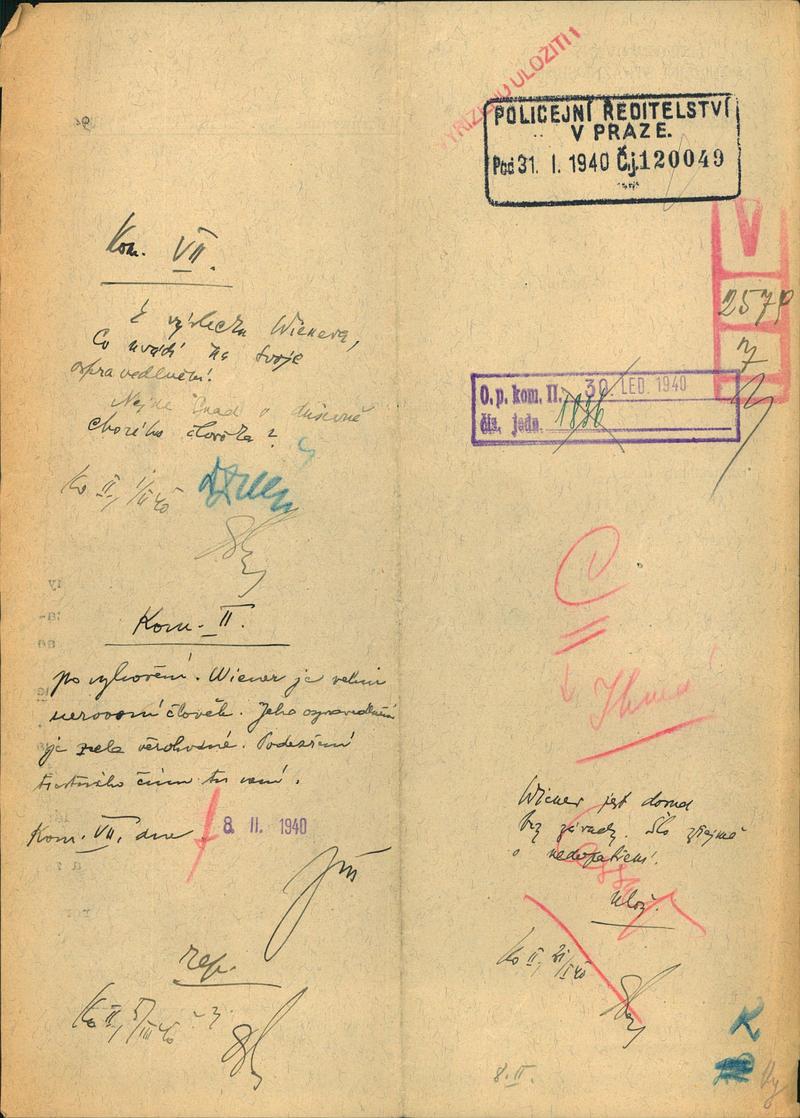 Kom. VII.
K výslechu Wienera,
Co uvádí na svoje
ospravedlnění.
Nejde snad o duševně
chorého člověka?
Ko II,
Kom. II.
po vyhovění. Wiener je velmi
nervosní člověk. Jeho ospravedlnění
je zcela věrohodné. Podezření
trestného činu tu není.
Kom. VII, dne 8 II. 1940
rep.
Ko II,
VYŘÍZENO ULOŽITI!
POLICEJNÍ ŘEDITELSTVÍ
V PRAZE.
Pod 31. I. 1940 Čj. 120049
V
2579
7
O. p. kom. II. 30. LED. 1940
čís. jedn. 1836
Ihned!
Wiener jest dosud
bez závady. Šlo zřejmě
o nedopatření.
Ulož.
Ko II,
8. II.
K